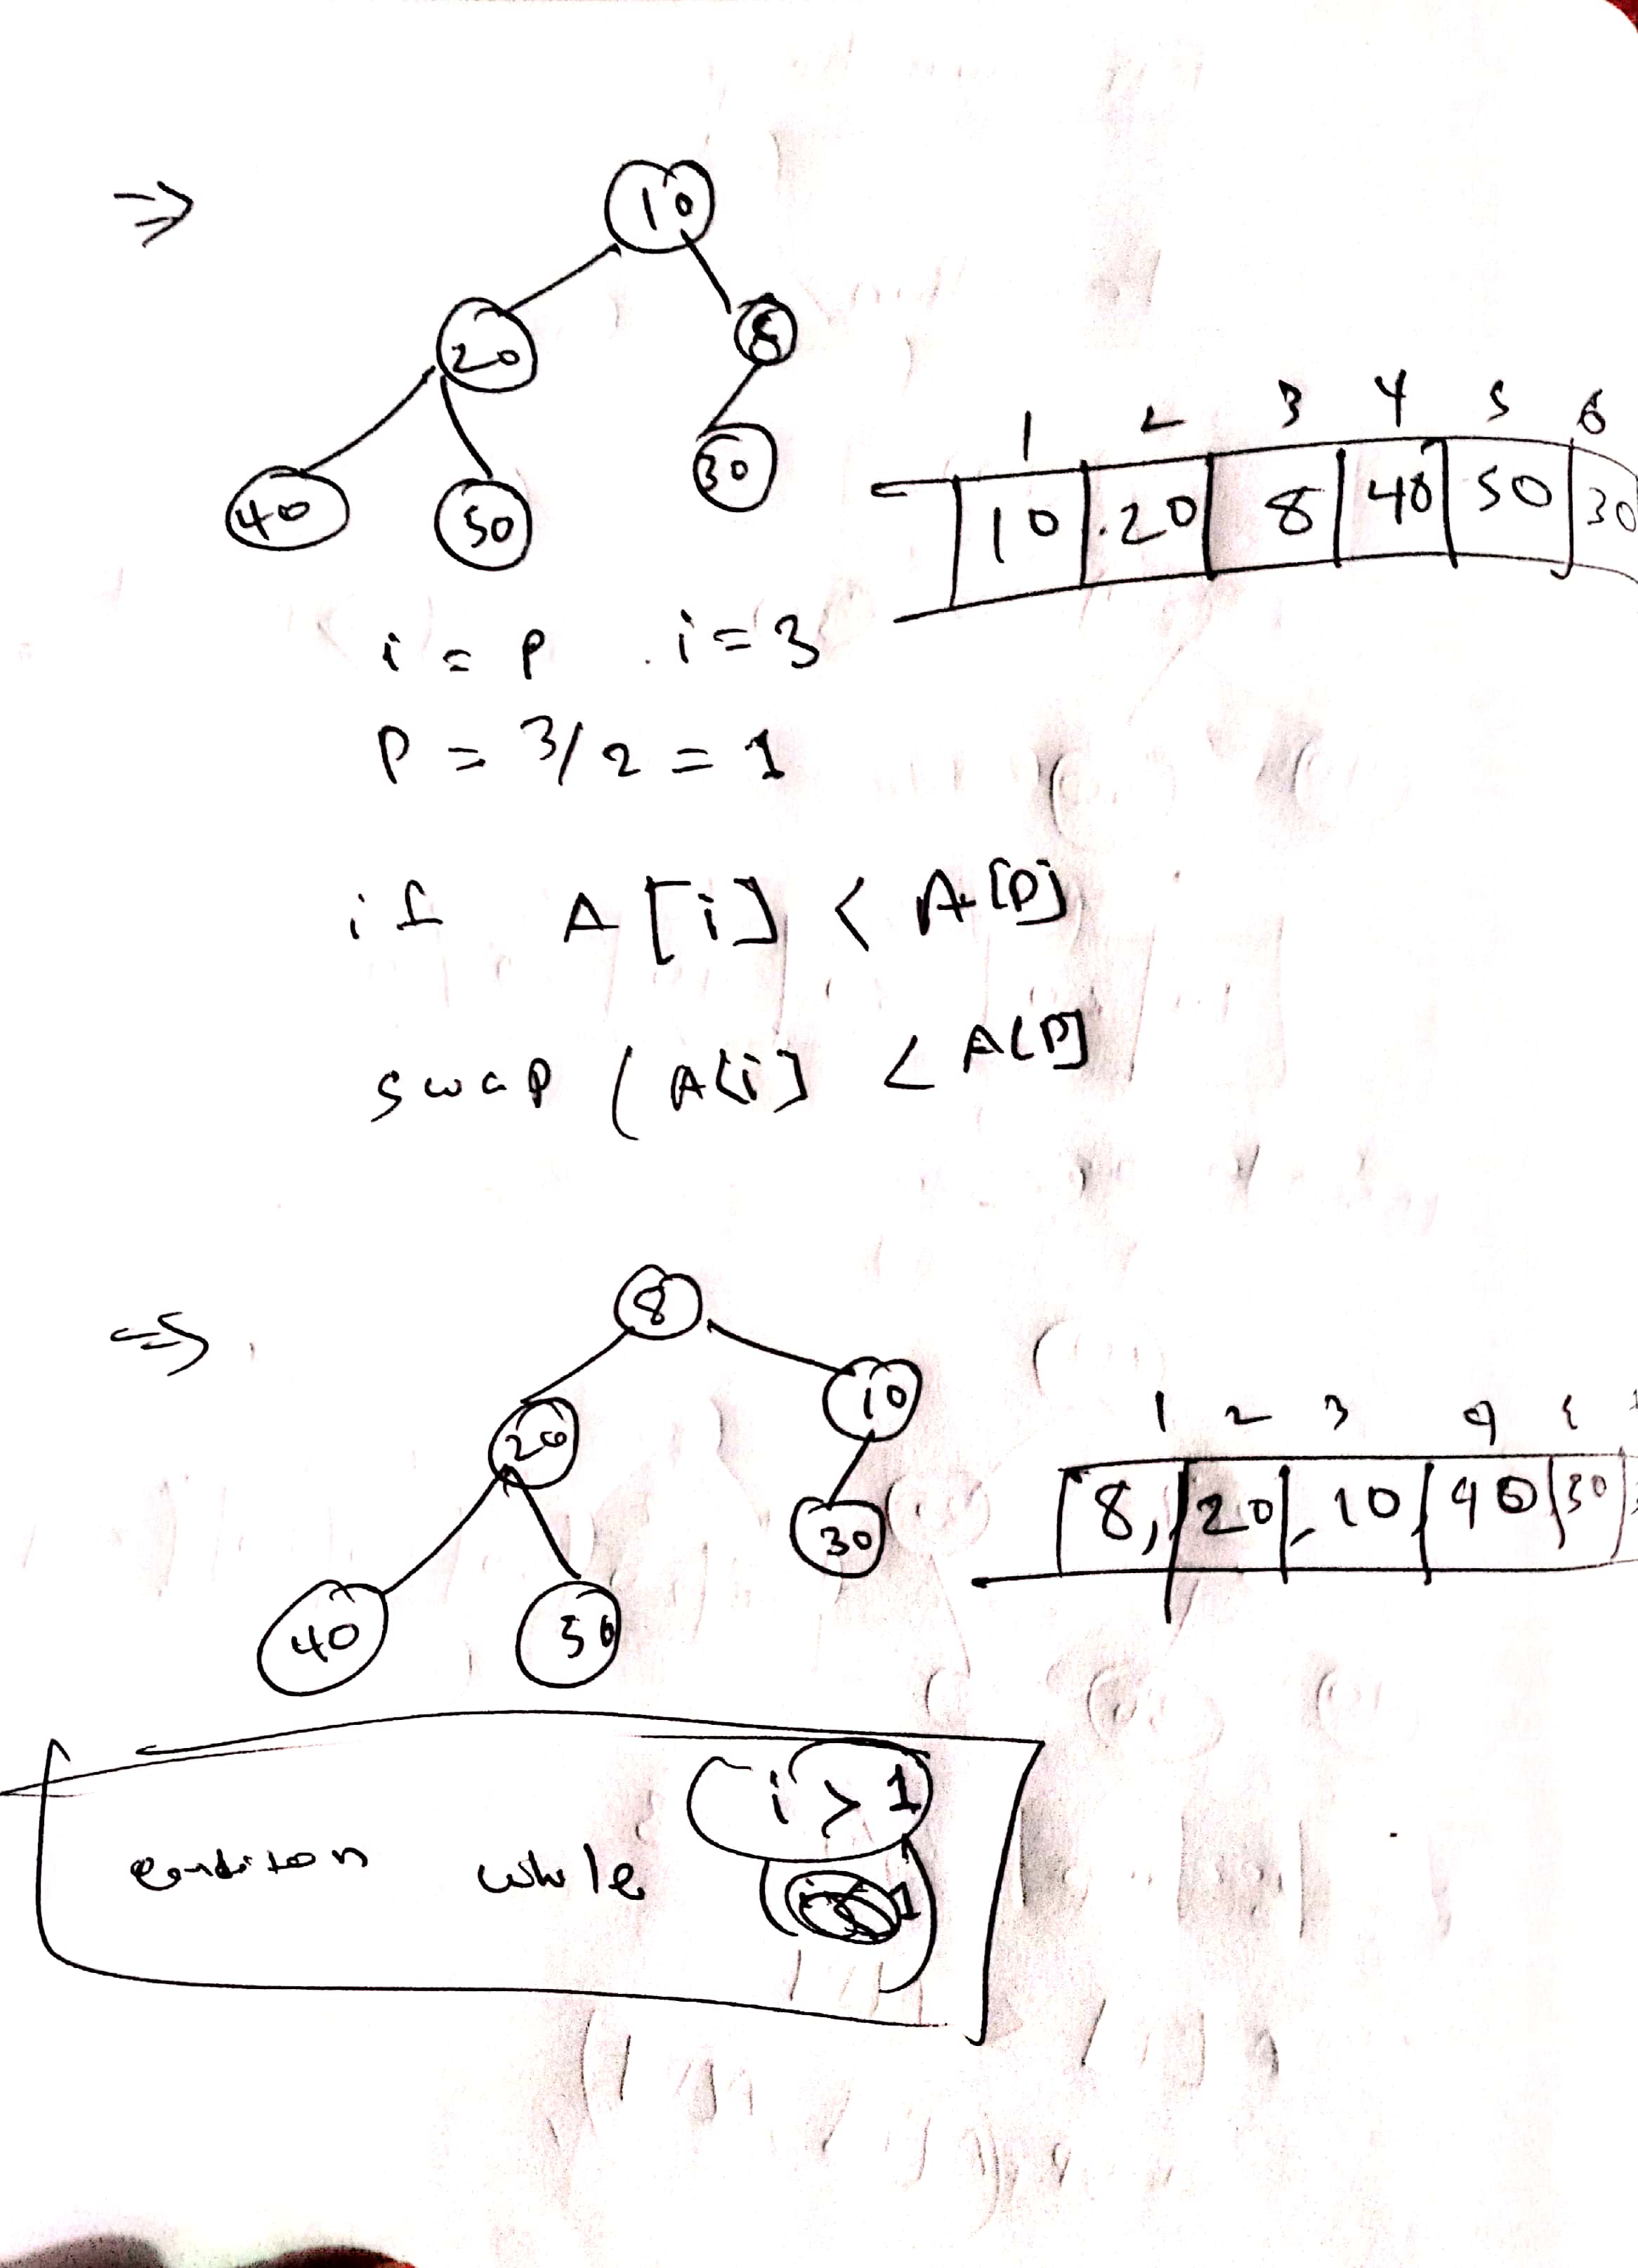 ⇒
10
20 8
40 50 30
1 2 3 4 5 6
10 20 8 40 50 30
i = P i = 3
P = 3/2 = 1
if A[i] < A[P]
swap (A[i] < A[P]
⇒
8
20 10
30
40 50
1 2 3 4 5
8, 20 10 40 30
conditon while (i > 1)